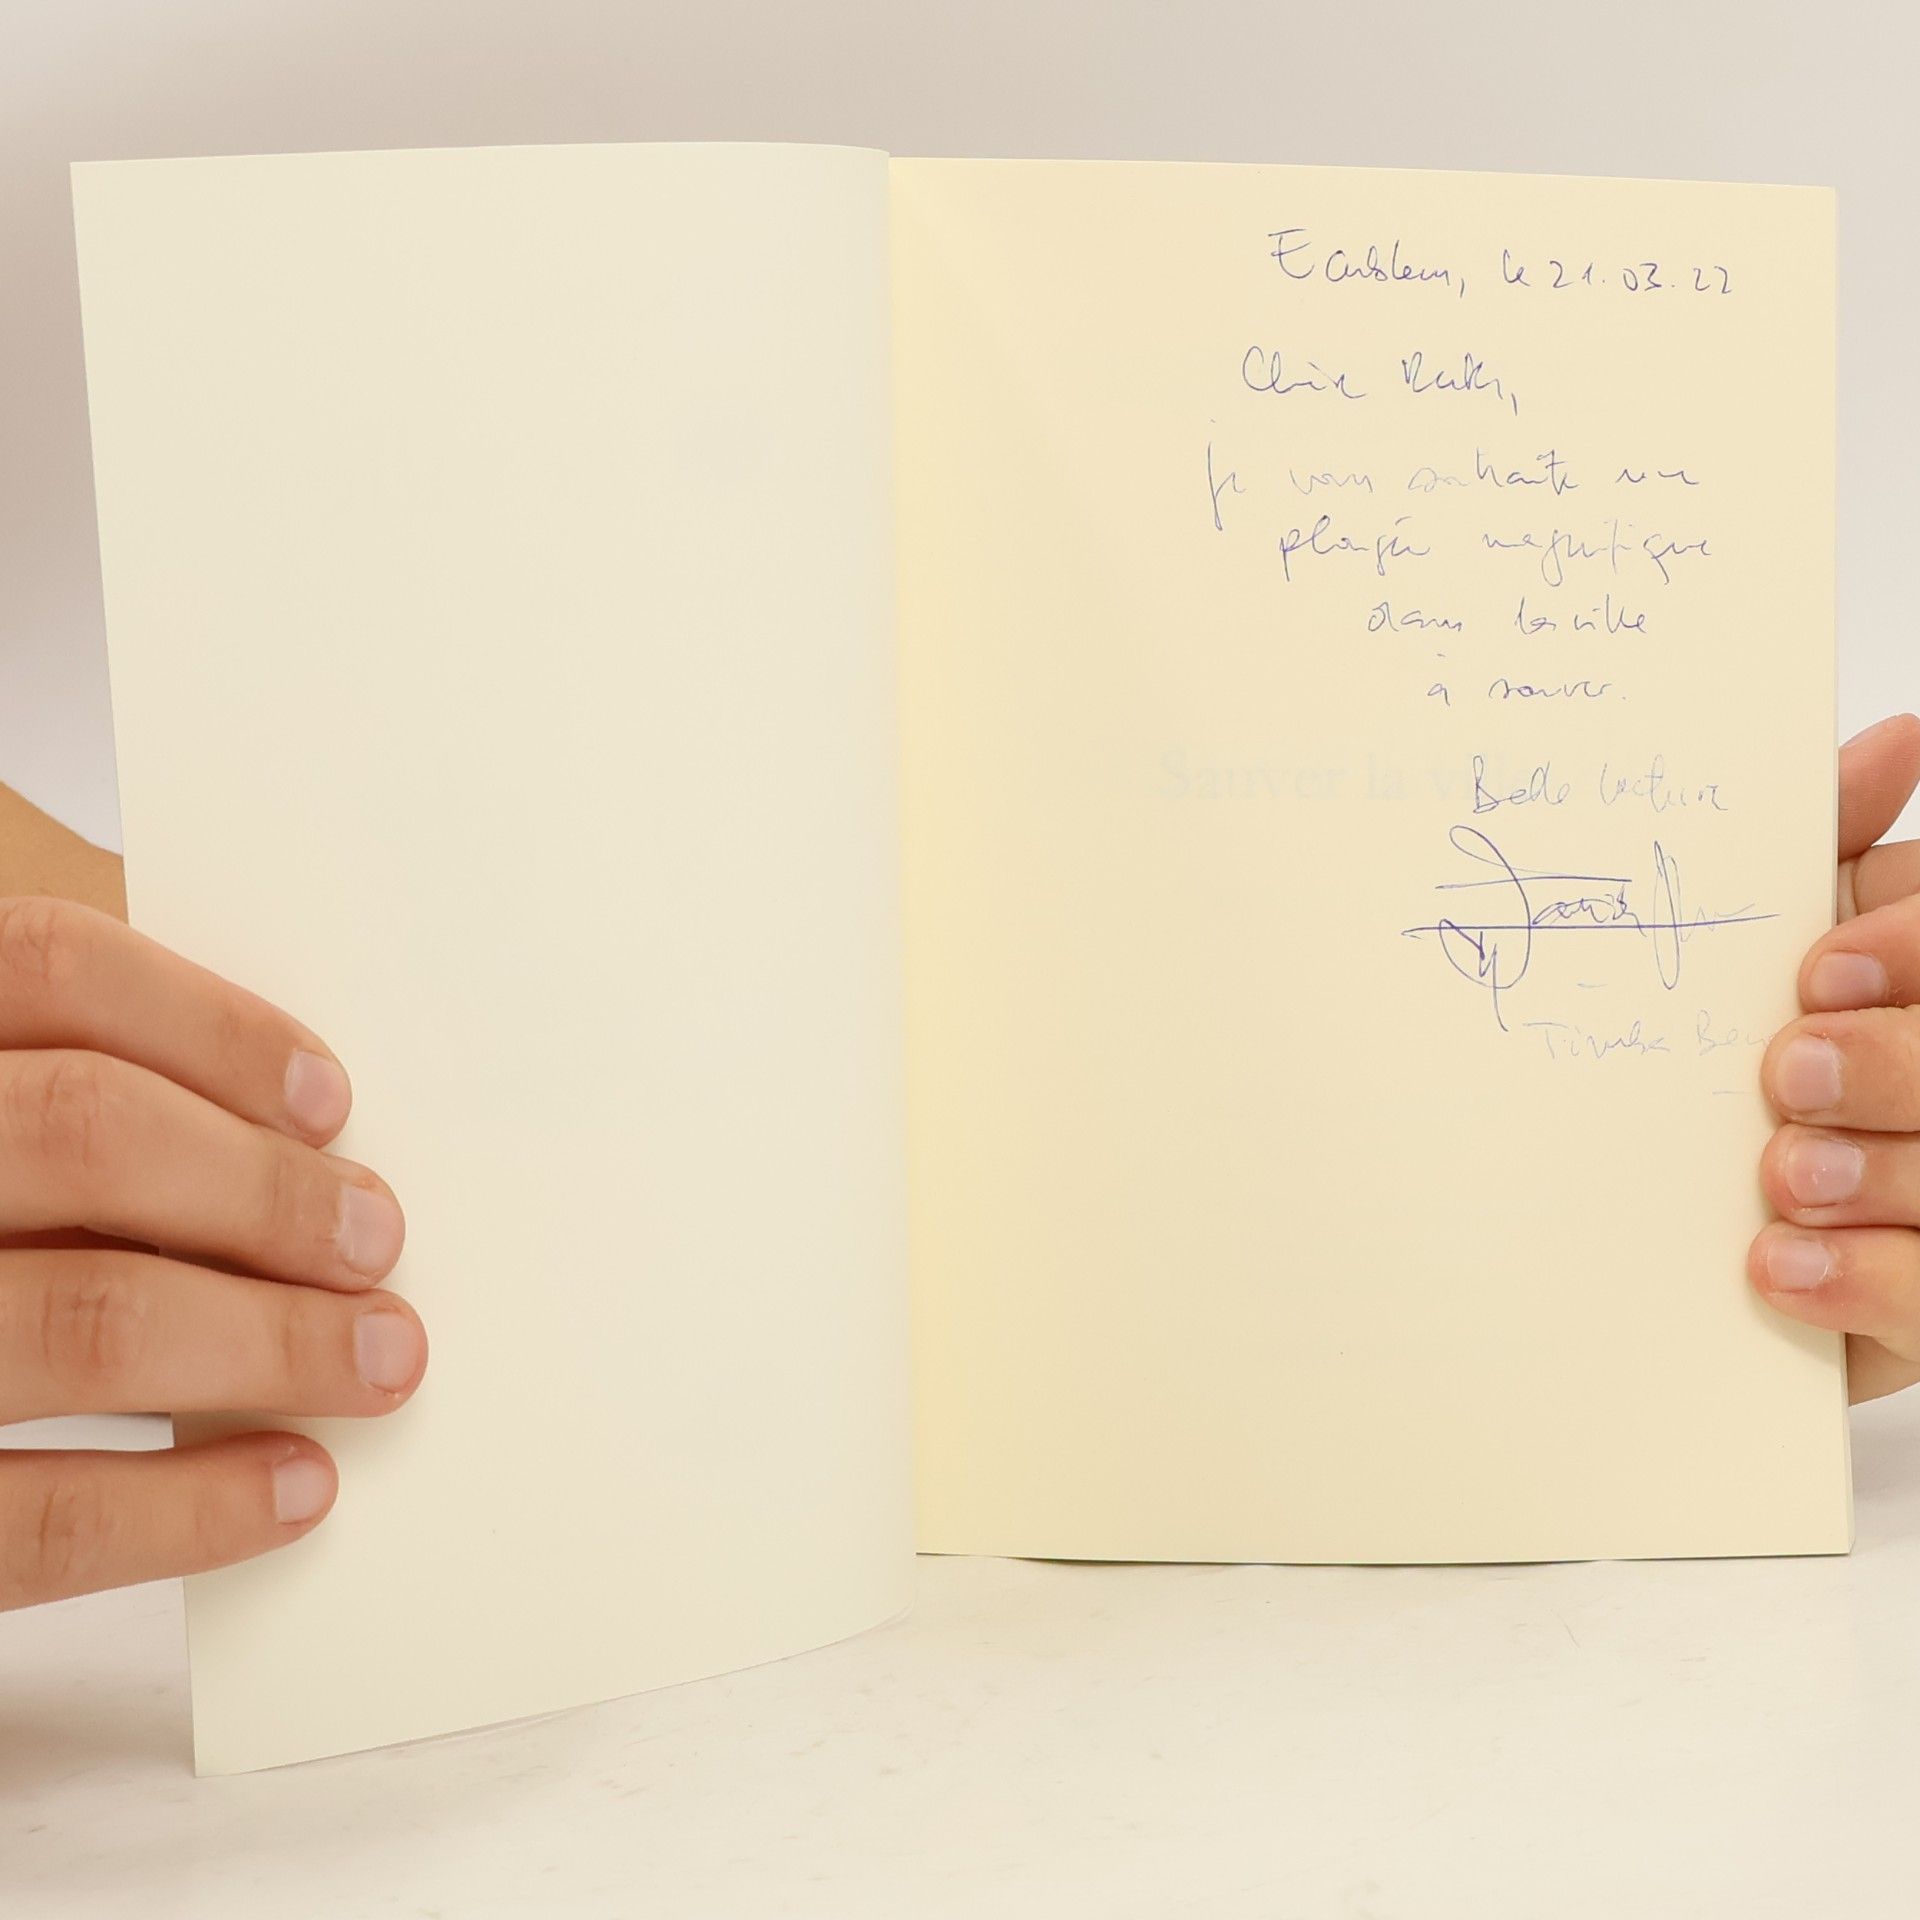 Ecublens, le 21.03.22
Chère Ruth,
je vous souhaite une
plongée magnifique
dans la ville
à sauver.
Sauver la ville
Belle lecture
Timba Bem